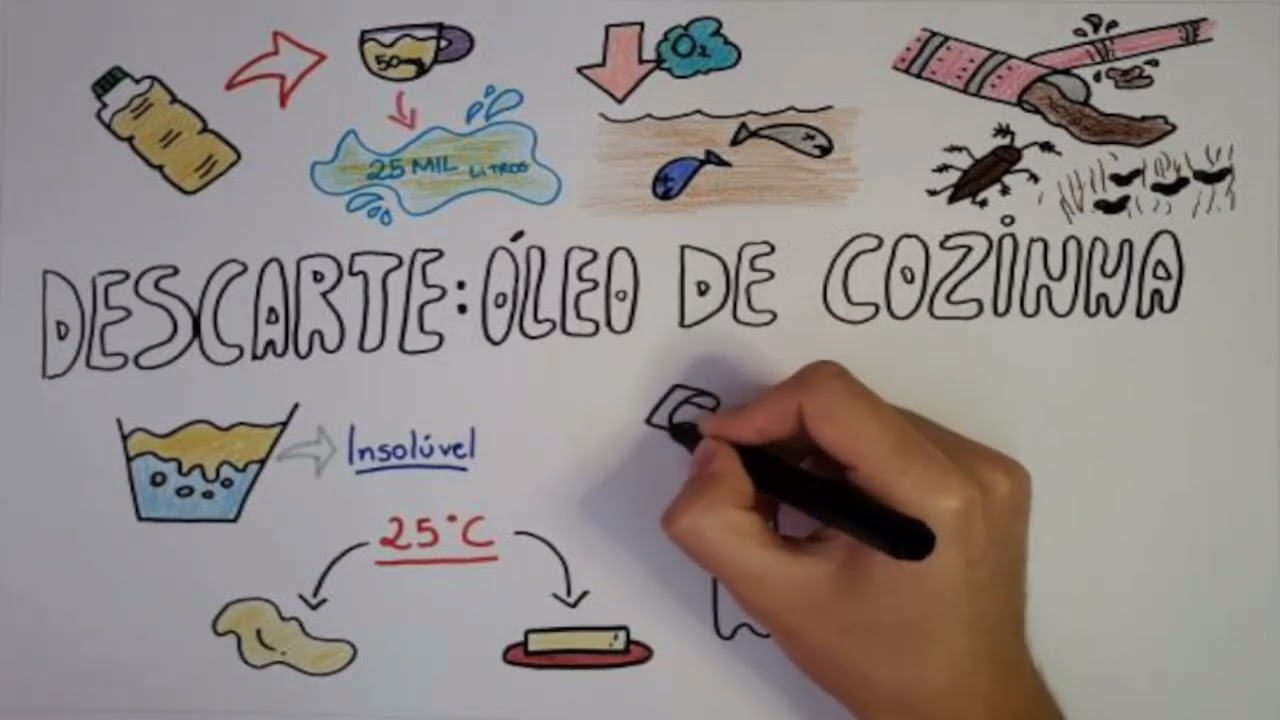 50mg
O₂
25 MIL LITROS
DESCARTE: ÓLEO DE COZINHA
Insolúvel
25°C